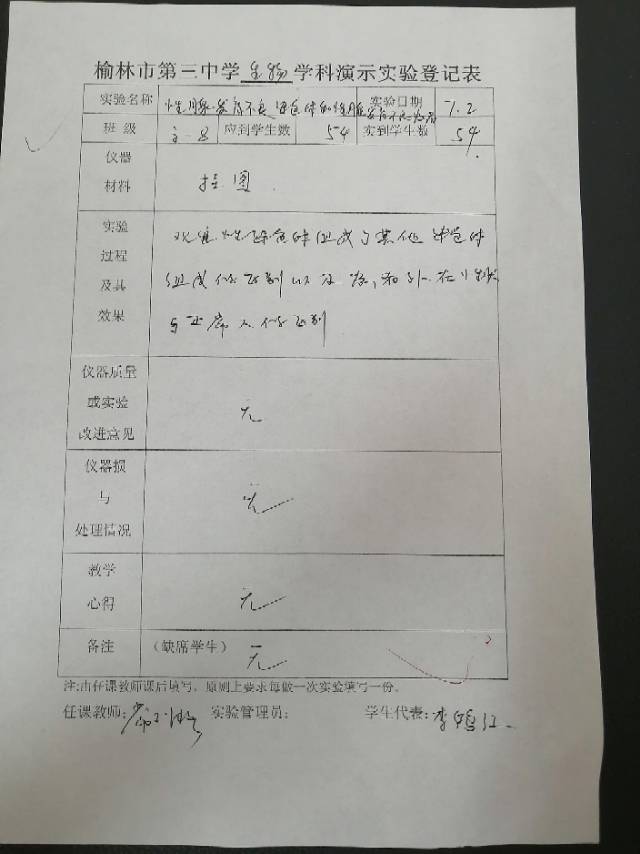 榆林市第三中学生物学科演示实验登记表
实验名称 性腺发育不良 染色体的性腺发育不良患者 实验日期 7.2
班级 高一8 应到学生数 54 实到学生数 54
仪器
材料
挂图
实验
过程
及其
效果
观察性染色体组成与其他染色体
组成的区别以及
的区别
仪器质量
或实验
改进意见
无
仪器损
与
处理情况
无
教学
心得
无
备注
(缺席学生) 无
注:由任课教师课后填写,原则上要求每做一次实验填写一份。
任课教师: 实验管理员: 学生代表:李鸿江